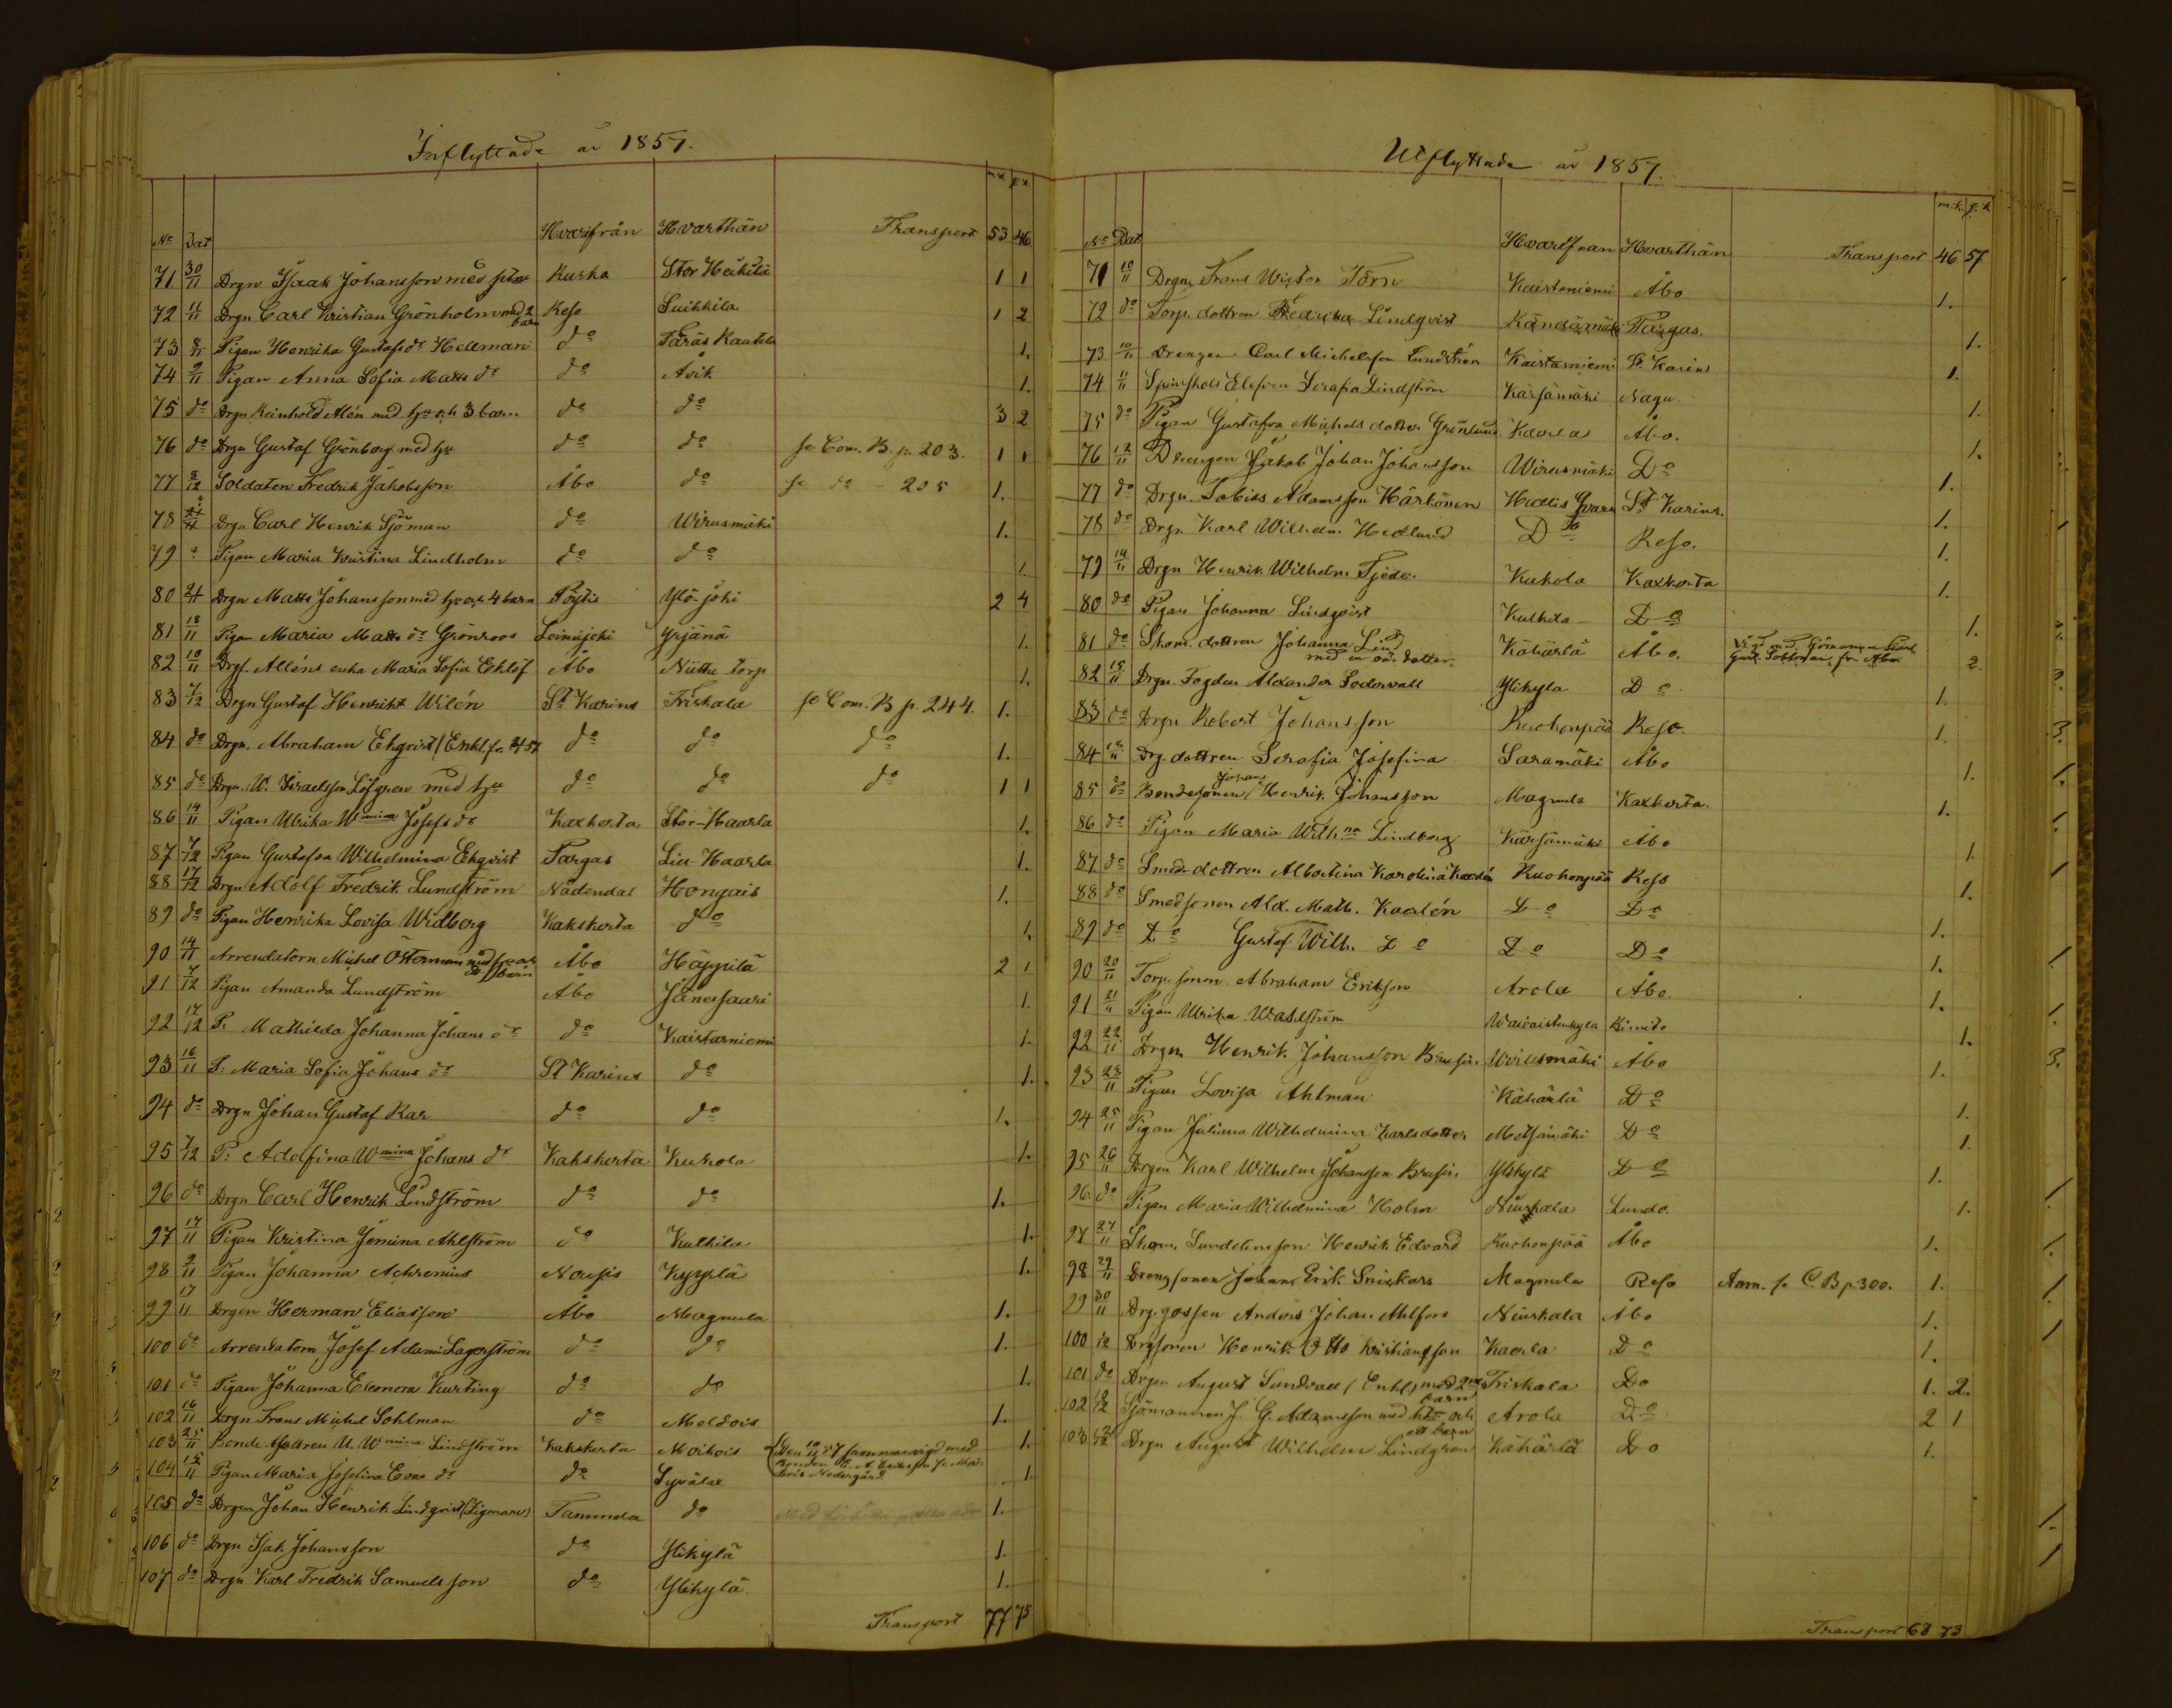 Inflyttade år 1857.
m.k. q.k.
No Dat Hvarifrån Hvarthän Transport 53 46
71 30/11 Drgn Isaak Johansson med Kuska Stor Heikilä 1 1
72 11/11 Drgn Carl Kristian Grönholm med 2 barn Reso Suikkila 1 2
73 8/11 Pigan Henrika Gustafs dr Hellman do Kautela 1.
74 9/11 Pigan Anna Sofia Matts dr do Avik 1.
75 do Drgn Reinhold Alén med hu och 3 barn do do 3 2
76 do Drgn Gustaf Grönborg med hu do do se Com. B p. 203. 1 1
77 8/12 Soldaten Fredrik Jakobsson Åbo do se do 205 1.
78 Drgn Carl Henrik Sjöman do Wirusmäki 1.
79 Pigan Maria Kristina Lindholm do do 1.
80 Drgn Matts Johansson med hu och 4 barn Pöytis Ylö-joki 2 4
81 18/11 Pigan Maria Matts dr Grönroos Loimijoki Yrjänä 1.
82 10/11 Drgs. Alléns enka Maria Sofia Eklöf Åbo Niittu torp 1.
83 7/12 Drgn Gustaf Henrikt Wilén St Karins Friskala se Com. B p. 244. 1.
84 do Drgn. Abraham Ekqvist do do do 1.
85 do Drgn. W. Israelsson Löfgren med hu do do do 1 1
86 14/11 Pigan Ulrika Wmina Josefs dr Kaxkerta Stor-Haarla 1.
87 7/12 Pigan Gustafva Wilhelmina Ekqvist Pargas Lill Haarla 1.
88 17/12 Drgn Adolf Fredrik Lundström Nådendal Hongais 1.
89 do Pigan Henrika Lovisa Widberg Kakskerta do 1.
90 14/11 Arrendatorn Michel Österman med hu och barn Åbo Häppilä 2 1
91 7/12 Pigan Amanda Lundström Åbo Jänessaari 1.
92 17/12 P. Mathilda Johanna Johans dr do Kaistarniemi 1.
93 16/11 P. Maria Sofia Johans dr St Karins do 1.
94 do Drgn Johan Gustaf Kar do do 1.
95 7/12 P. Adolfina Wmina Johans dr Kakskerta Kukola 1.
96 do Drgn Carl Henrik Lindström do do 1.
97 17/11 Pigan Kristina Jemina Ahlström do Kulkila 1.
98 9/11 Pigan Johanna Achrenius Nousis Kyrklä 1.
99 17/11 Drgen Herman Eliasson Åbo Magnula 1.
100 do Arrendatorn Josef Adam Lagerström do do 1.
101 do Pigan Johanna Eleonora Kurting do do 1.
102 16/11 Drgn Frans Michel Sohlman do Meldois 1.
103 25/11 Bonde dottren U. Wmina Lindström Kakskerta Moikois Den 10/11 57 sammanvigd med 1.
Bonden
104 12/11 Pigan Maria Josefina Evas dr do Syvälax 1.
105 do Drgen Johan Henrik Lindqvist (Zigenare) Tammela do 1.
106 do Drgn Isak Johansson do Ylikylä 1.
107 do Drgn Karl Fredrik Samuelsson do Ylikylä 1.
Transport 77 75
Utflyttade år 1857.
m.k. q.k.
No Dat Hvarifrån Hvarthän Transport 46 57
71 10/11 Drgn Frans Wigtor Törn Kaistarniemi Åbo 1.
72 do Torp. dottren Fredrika Lindqvist Pargas. 1.
73 10/11 Drengen Carl Michelsson Lundström Kaistarniemi St Karins 1.
74 11/11 Serafia Lindström Kärsämäki Nagu. 1.
75 do Pigan Gustafva Michels dotter Grönlund Kaerla Åbo. 1.
76 12/11 Drengen Jakob Johan Johansson Wirusmäki Do 1.
77 do Drgn. Tobias Adamsson Härkönen Hallis Qvarn St Karins. 1.
78 do Drgn Karl Wilhelm Hedlund Do Reso. 1.
79 14/11 Drgn Henrik Wilhelm Tjeder Kukola Kaxkerta 1.
80 do Pigan Johanna Lindqvist Kulkila Do 1.
81 do Skom. dottren Johanna Lind med en oä. dotter. Kähärlä Åbo. 2
82 15/11 Drgn Fogden Alexander Söderwall Ylikyla Do 1.
83 do Drgn Robert Johansson Ruohonpää Reso. 1.
84 18/11 Drg. dottren Serafia Josefina Saramäki Åbo 1.
85 do Bondesonen Johan Henrik Johansson Magnula Kaxkerta. 1.
86 do Pigan Maria Wilh:na Lindberg Kärsämäki Åbo 1.
87 do Smed dottren Albertina Karolina Kaerlén Ruohonpää Reso 1.
88 do Smedsonen Alx. Math. Kaerlén Do Do 1.
89 do Do Gustaf Wilh. Do Do Do 1.
90 20/11 Torp. sonen Abraham Erikson Arola Åbo. 1.
91 21/11 Pigan Ulrika Wahlström Kimito 1.
92 22/11 Drgn. Henrik Johansson Wirusmäki Åbo 1.
93 23/11 Pigan Lovisa Ahlman Kähärlä Do 1.
94 25/11 Pigan Juliana Wilhelmina Karlsdotter Metsämäki Do 1.
95 26/11 Drgn Karl Wilhelm Johansson Ylikylä Do 1.
96. do Pigan Maria Wilhelmina Holm Niuskala Lundo. 1.
97 27/11 Skom. Sundelinsson Henrik Edvard Ruohonpää Åbo 1.
98 29/11 Drengsonen Johan Erik Snickars Magnula Reso Anm. se C. B p. 300. 1.
99 30/11 Drg. gossen Anders Johan Ahlfors Niuskala Åbo 1.
100 Drgsonen Henrik Otto Kristiansson Kaerla Do 1.
101 do Drgen August Sundvall (Enkl.) med 2ne barn Friskala Do 1. 2.
102 Sjömannen J. G. Adamsson med hu och ett barn Arola Do 2 1
103 Drgn August Wilhelm Lindgren Kähärlä Do 1.
Transport 68 73